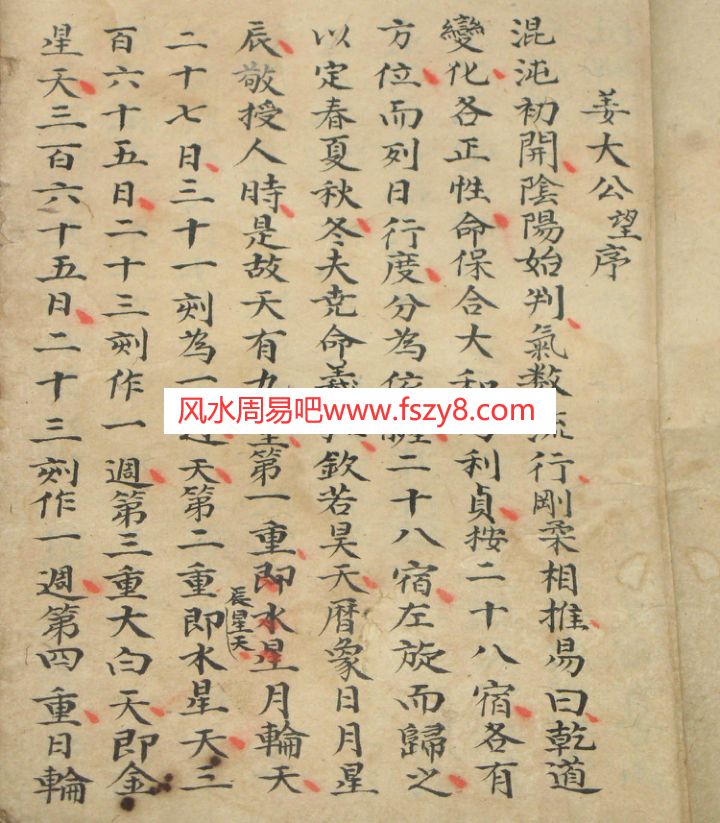 姜大公望序
混沌初開陰陽始判氣数流行剛柔相推易曰乾道
變化各正性命保合大和利貞按二十八宿各有
方位而列日行度分為依二十八宿左旋而歸之
以定春夏秋冬夫尭命羲欽若昊天曆象日月星
辰敬授人時是故天有九重第一重即水星月輪天
辰星天
二十七日三十一刻為一天第二重即水星天三
百六十五日二十三刻作一週第三重大白天即金
星天三百六十五日二十三刻作一週第四重日輪
风水周易吧www.fszy8.com